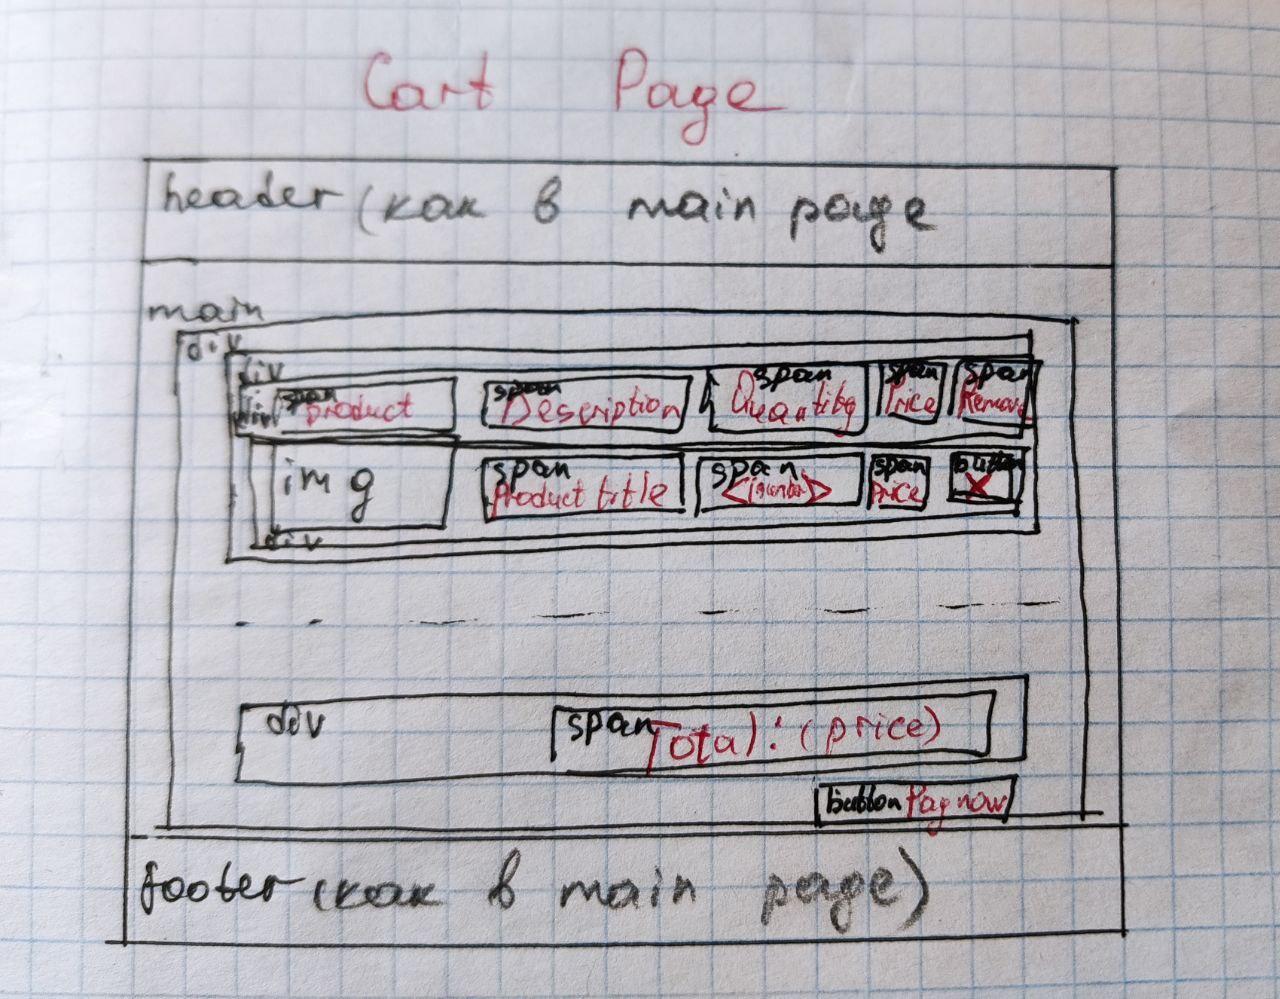 Cart Page
header (как в main page
main
div
div
div span product span Description span Quantity span Price span Remove
img span product title span < (number) > span price button X
div
div span Total: (price)
button Pay now
footer (как в main page)